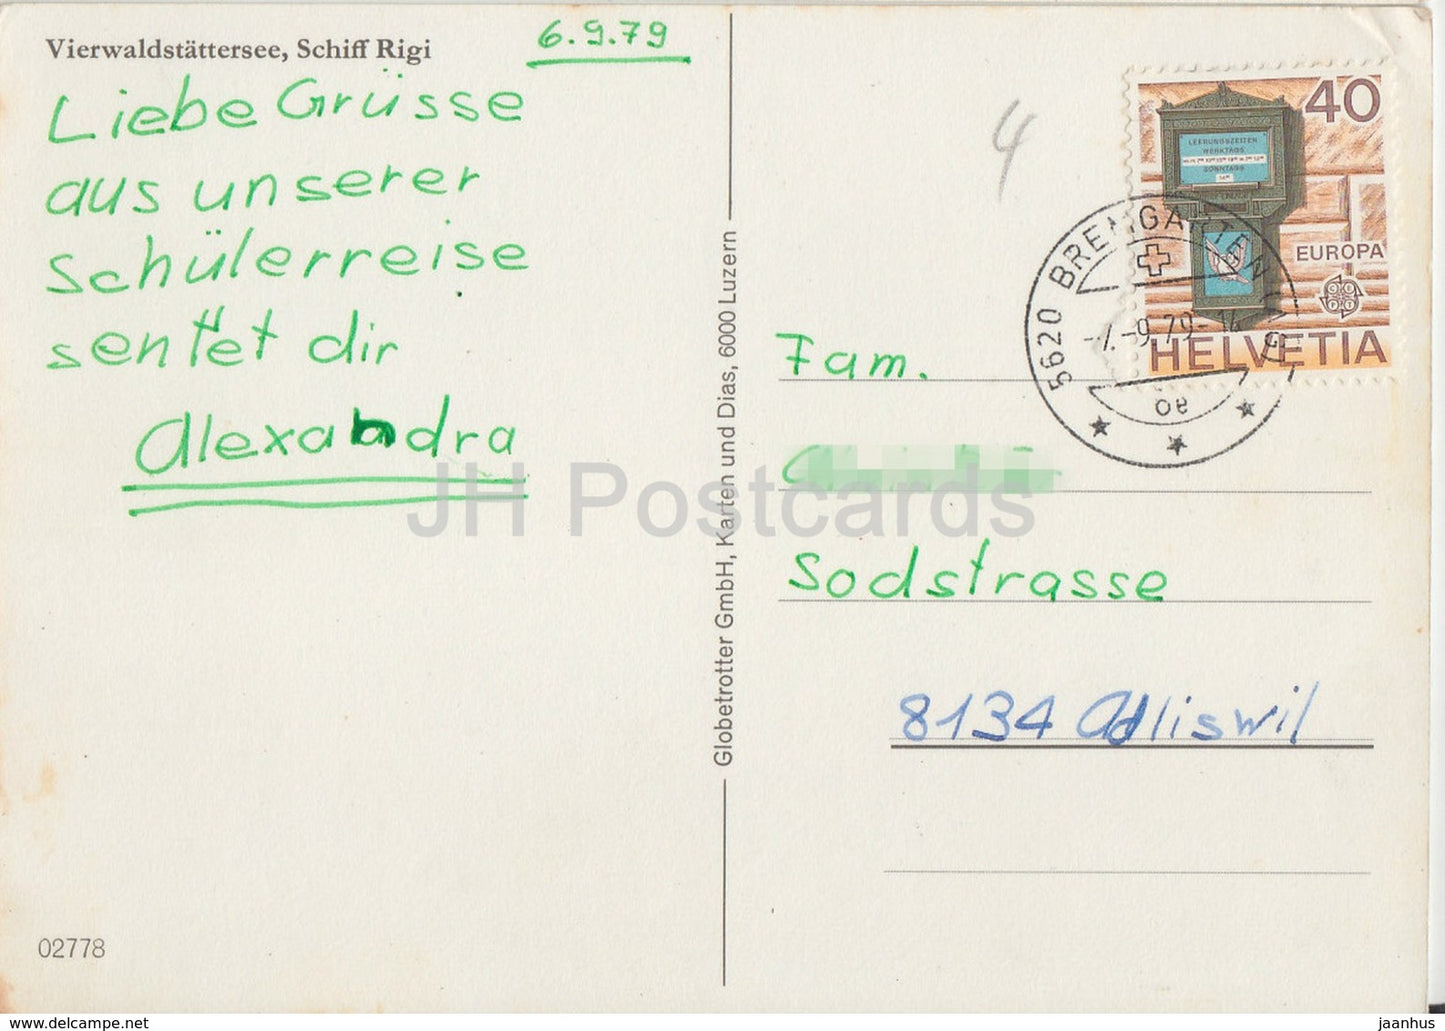 Vierwaldstättersee, Schiff Rigi
6.9.79
Liebe Grüsse
aus unserer
Schülerreise
sentet dir
Alexandra
02778
Globetrotter GmbH, Karten und Dias, 6000 Luzern
4
40
LEERUNGSZEITEN
WERKTAGS
SONNTAGS
EUROPA
HELVETIA
5620 BREMGARTEN (AG)
-7.-9.79-
Fam.
Sodstrasse
8134 Adliswil
JH Postcards
picture.delcampe.net
jaanhus